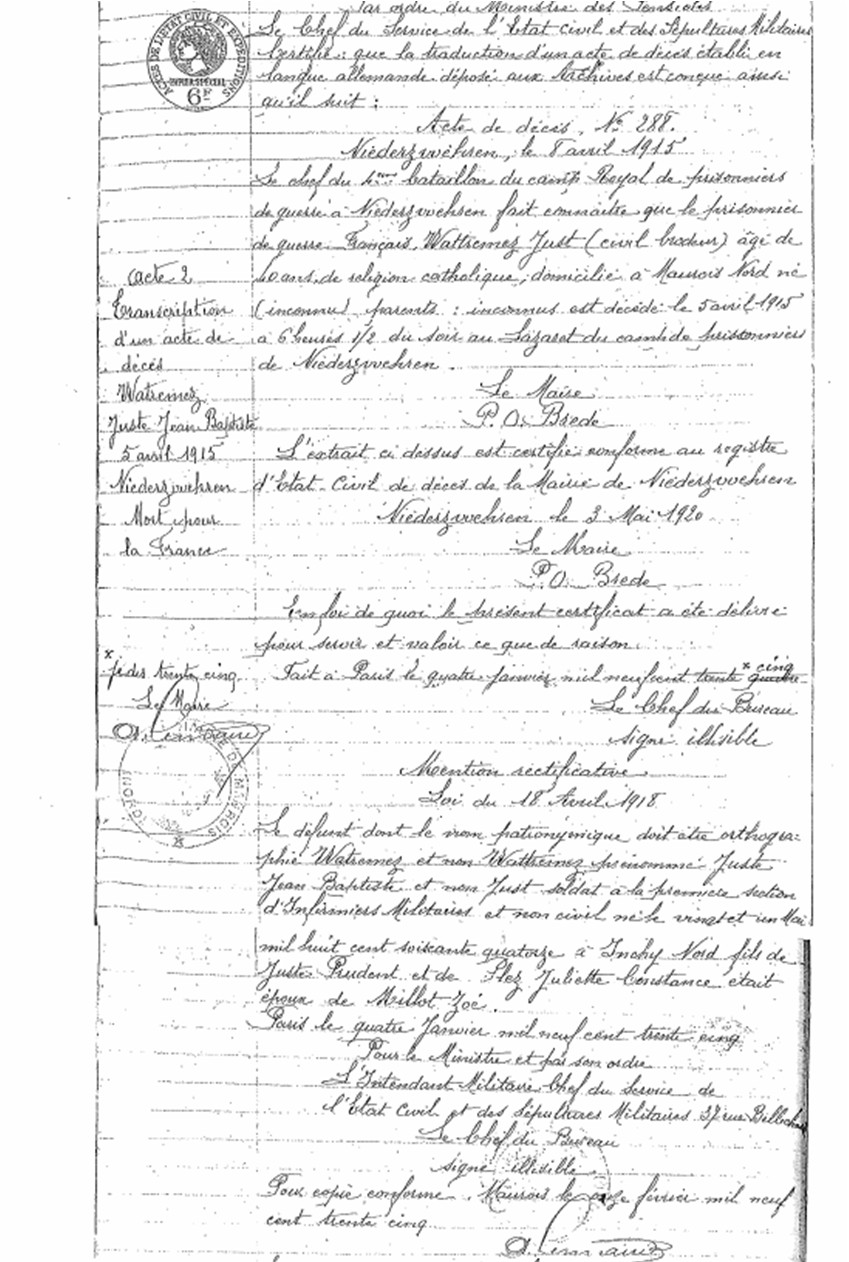 Par ordre du Ministre des Pensions
Le Chef du Service de l'Etat civil et des Sépultures Militaires
Certifie : que la traduction d'un acte de décès établi en
langue allemande déposé aux Archives est conçue ainsi
qu'il suit :
ACTES DE L'ETAT CIVIL ET EXPEDITIONS
PAPIER SPECIAL
6F
Acte de décès, No 288.
Niederzwehren, le 8 avril 1915
Le chef du 4ème bataillon du camp Royal de prisonniers
de guerre à Niederzwehren fait connaître que le prisonnier
de guerre Français, Wattremez Just (civil brodeur) âgé de
40 ans, de religion catholique, domicilié à Maurois Nord né
(inconnu) parents : inconnus est décédé le 5 avril 1915
à 6 heures 1/2 du soir au Lazaret du camp de prisonniers
de Niederzwehren.
Acte 2
Transcription
d'un acte de
décès
Watremez
Juste Jean Baptiste
5 avril 1915
Niederzwehren
Mort pour
la France
Le Maire
P.O. Brede
L'extrait ci dessus est certifié conforme au registre
d'Etat-Civil de décès de la Mairie de Niederzwehren
Niederzwehren le 3 Mai 1920
Le Maire
P.O. Brede
En foi de quoi le présent certificat a été délivré
pour servir et valoir ce que de raison.
Fait à Paris le quatre Janvier mil neuf cent trente quatre x cinq
x trente cinq
Le Maire
Le Chef du Bureau
signé illisible
Mention rectificative
Loi du 18 Avril 1918
Le défunt dont le nom patronymique doit être orthogra-
phié Watremez et non Wattremez prénommé Juste
Jean Baptiste et non Just soldat à la première section
d'Infirmiers Militaires et non civil né le vingt et un Mai
mil huit cent soixante quatorze à Inchy Nord fils de
Juste Prudent et de Slez Juliette Constance était
époux de Millot Zoé.
Paris le quatre Janvier mil neuf cent trente cinq
Pour le Ministre et par son ordre
L'Intendant Militaire Chef du Service de
l'Etat Civil et des Sépultures Militaires 37 rue Bellechasse
Le Chef du Bureau
signé illisible
Pour copie conforme. Maurois le onze février mil neuf
cent trente cinq